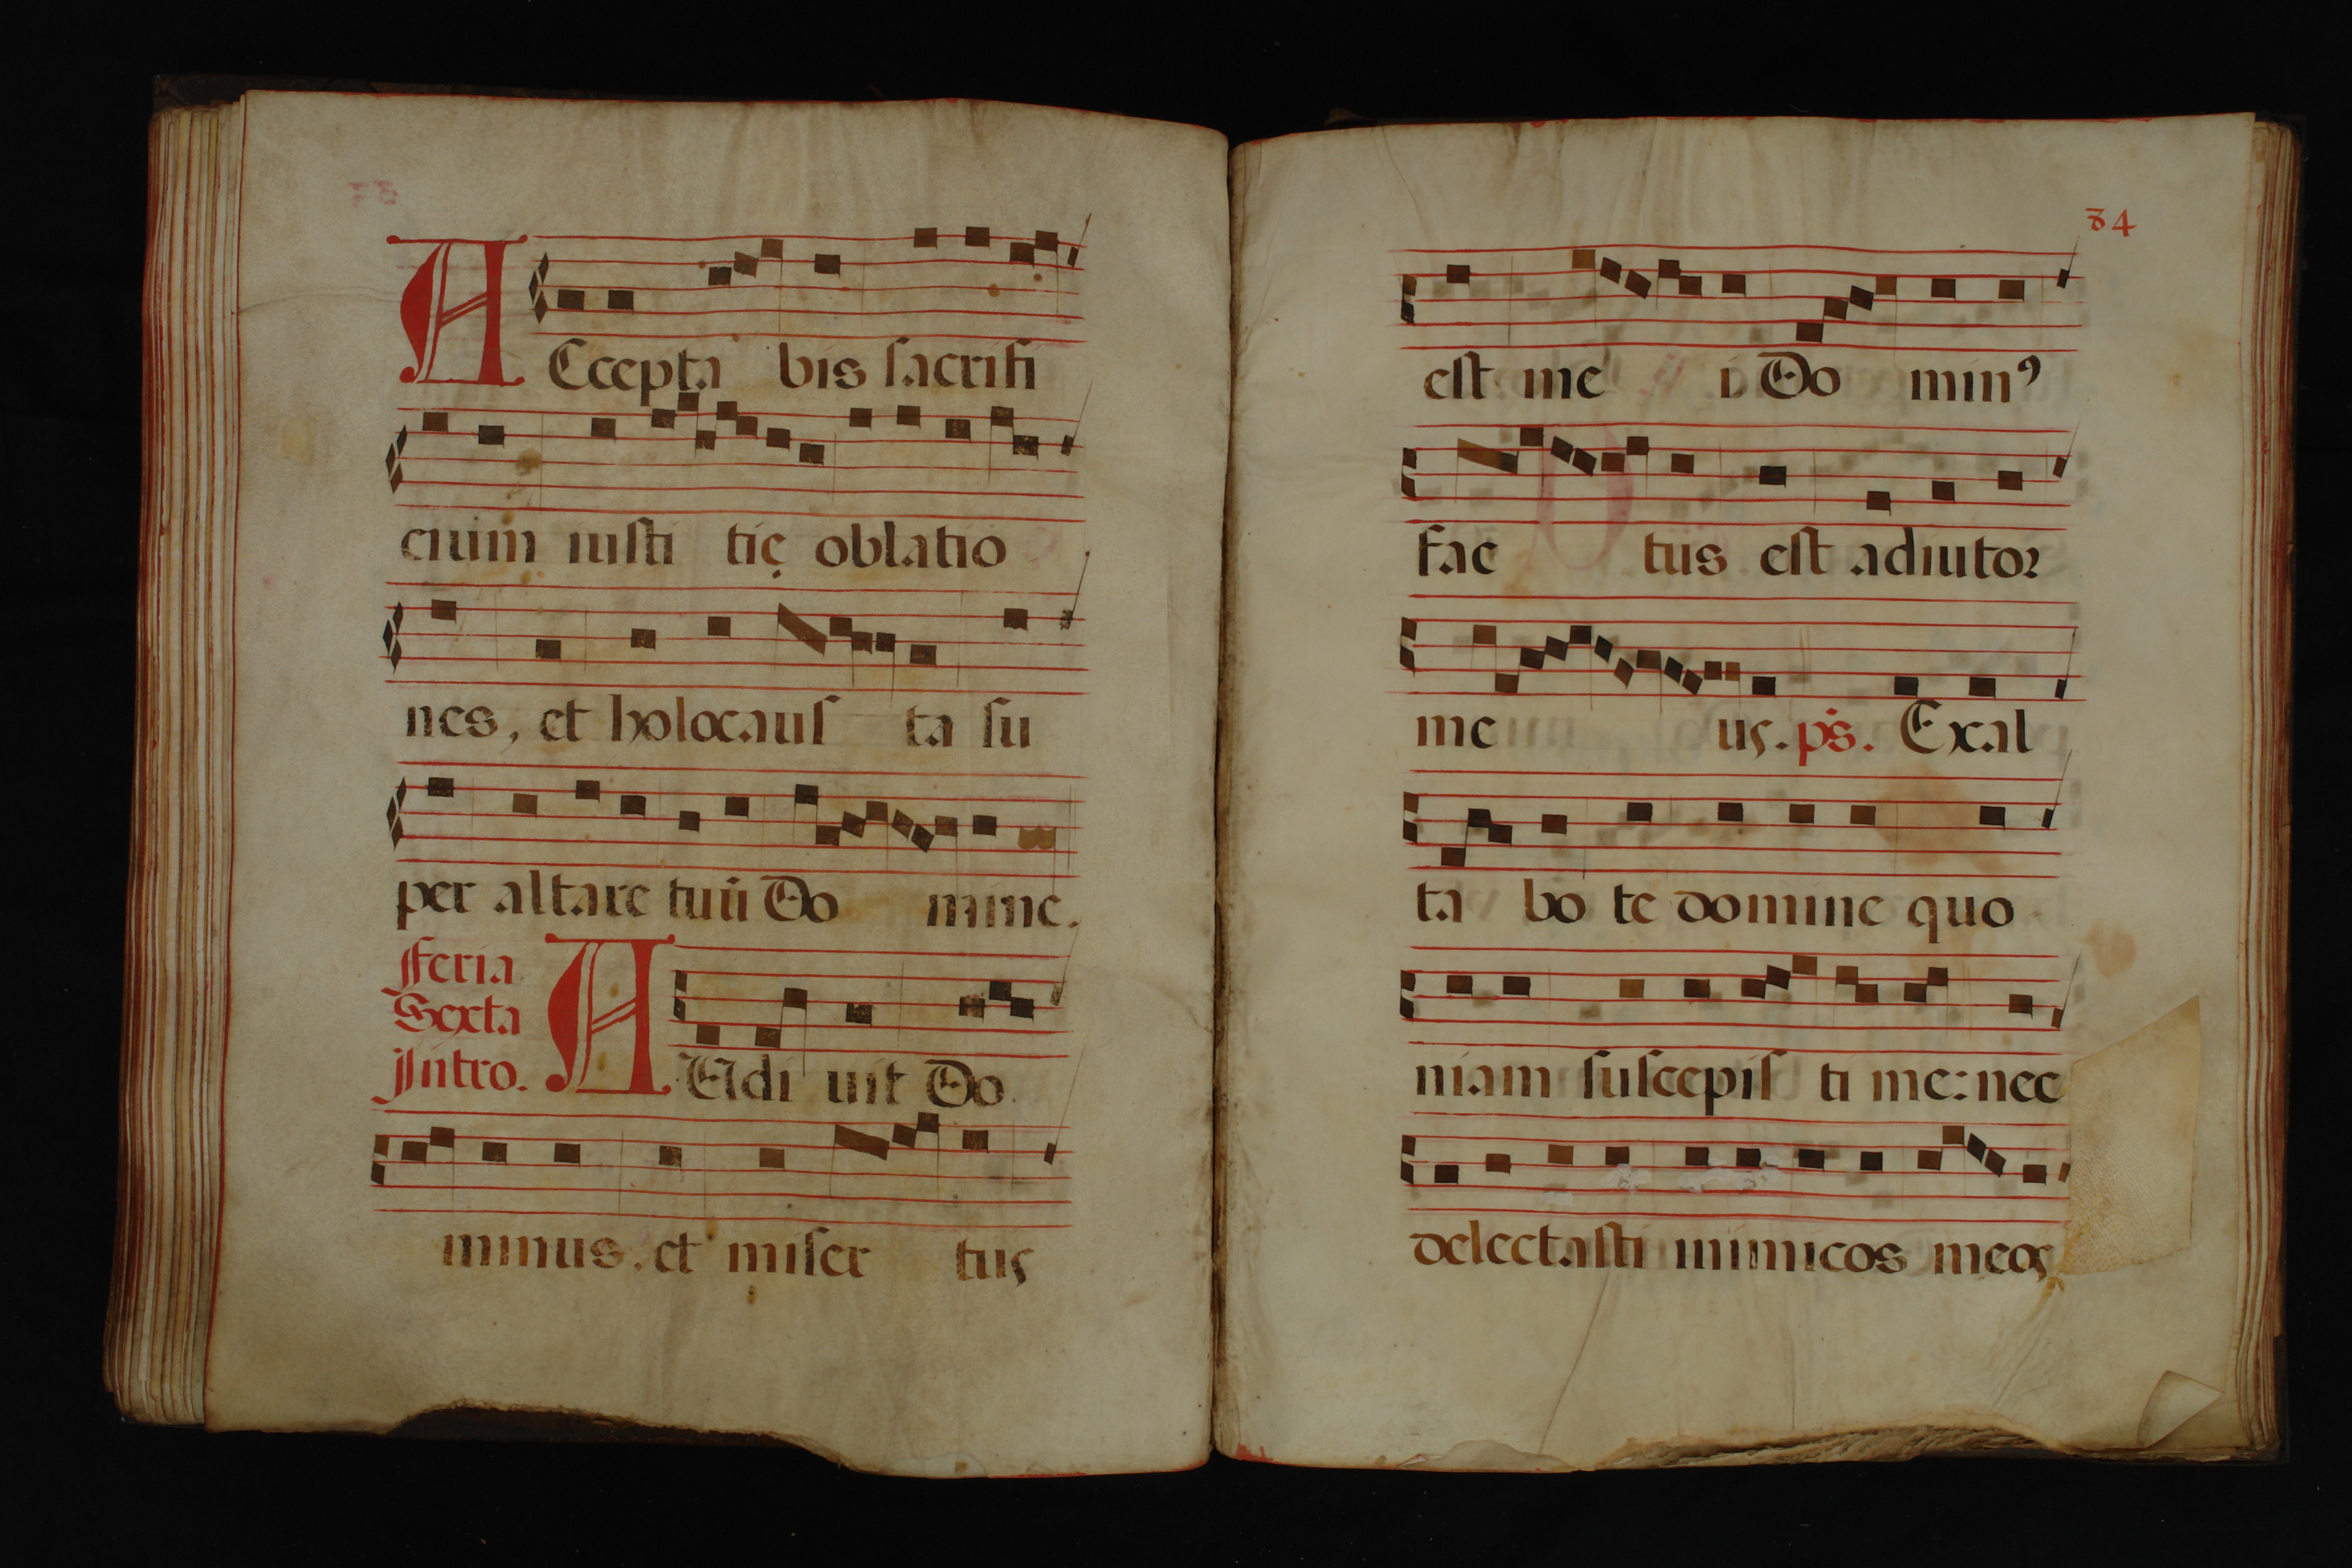 ACcepta bis sacrifi
cium iusti tię oblatio
nes, et holocaus ta su
per altare tuū Do mine.
Feria
Sexta
Intro.
AUdi uit Do
minus. et miser tus
84
est me i Do minꝰ
fac tus est adiutor
me us. ps. Exal
ta bo te domine quo
niam suscepis ti me: nec
delectasti inimicos meos